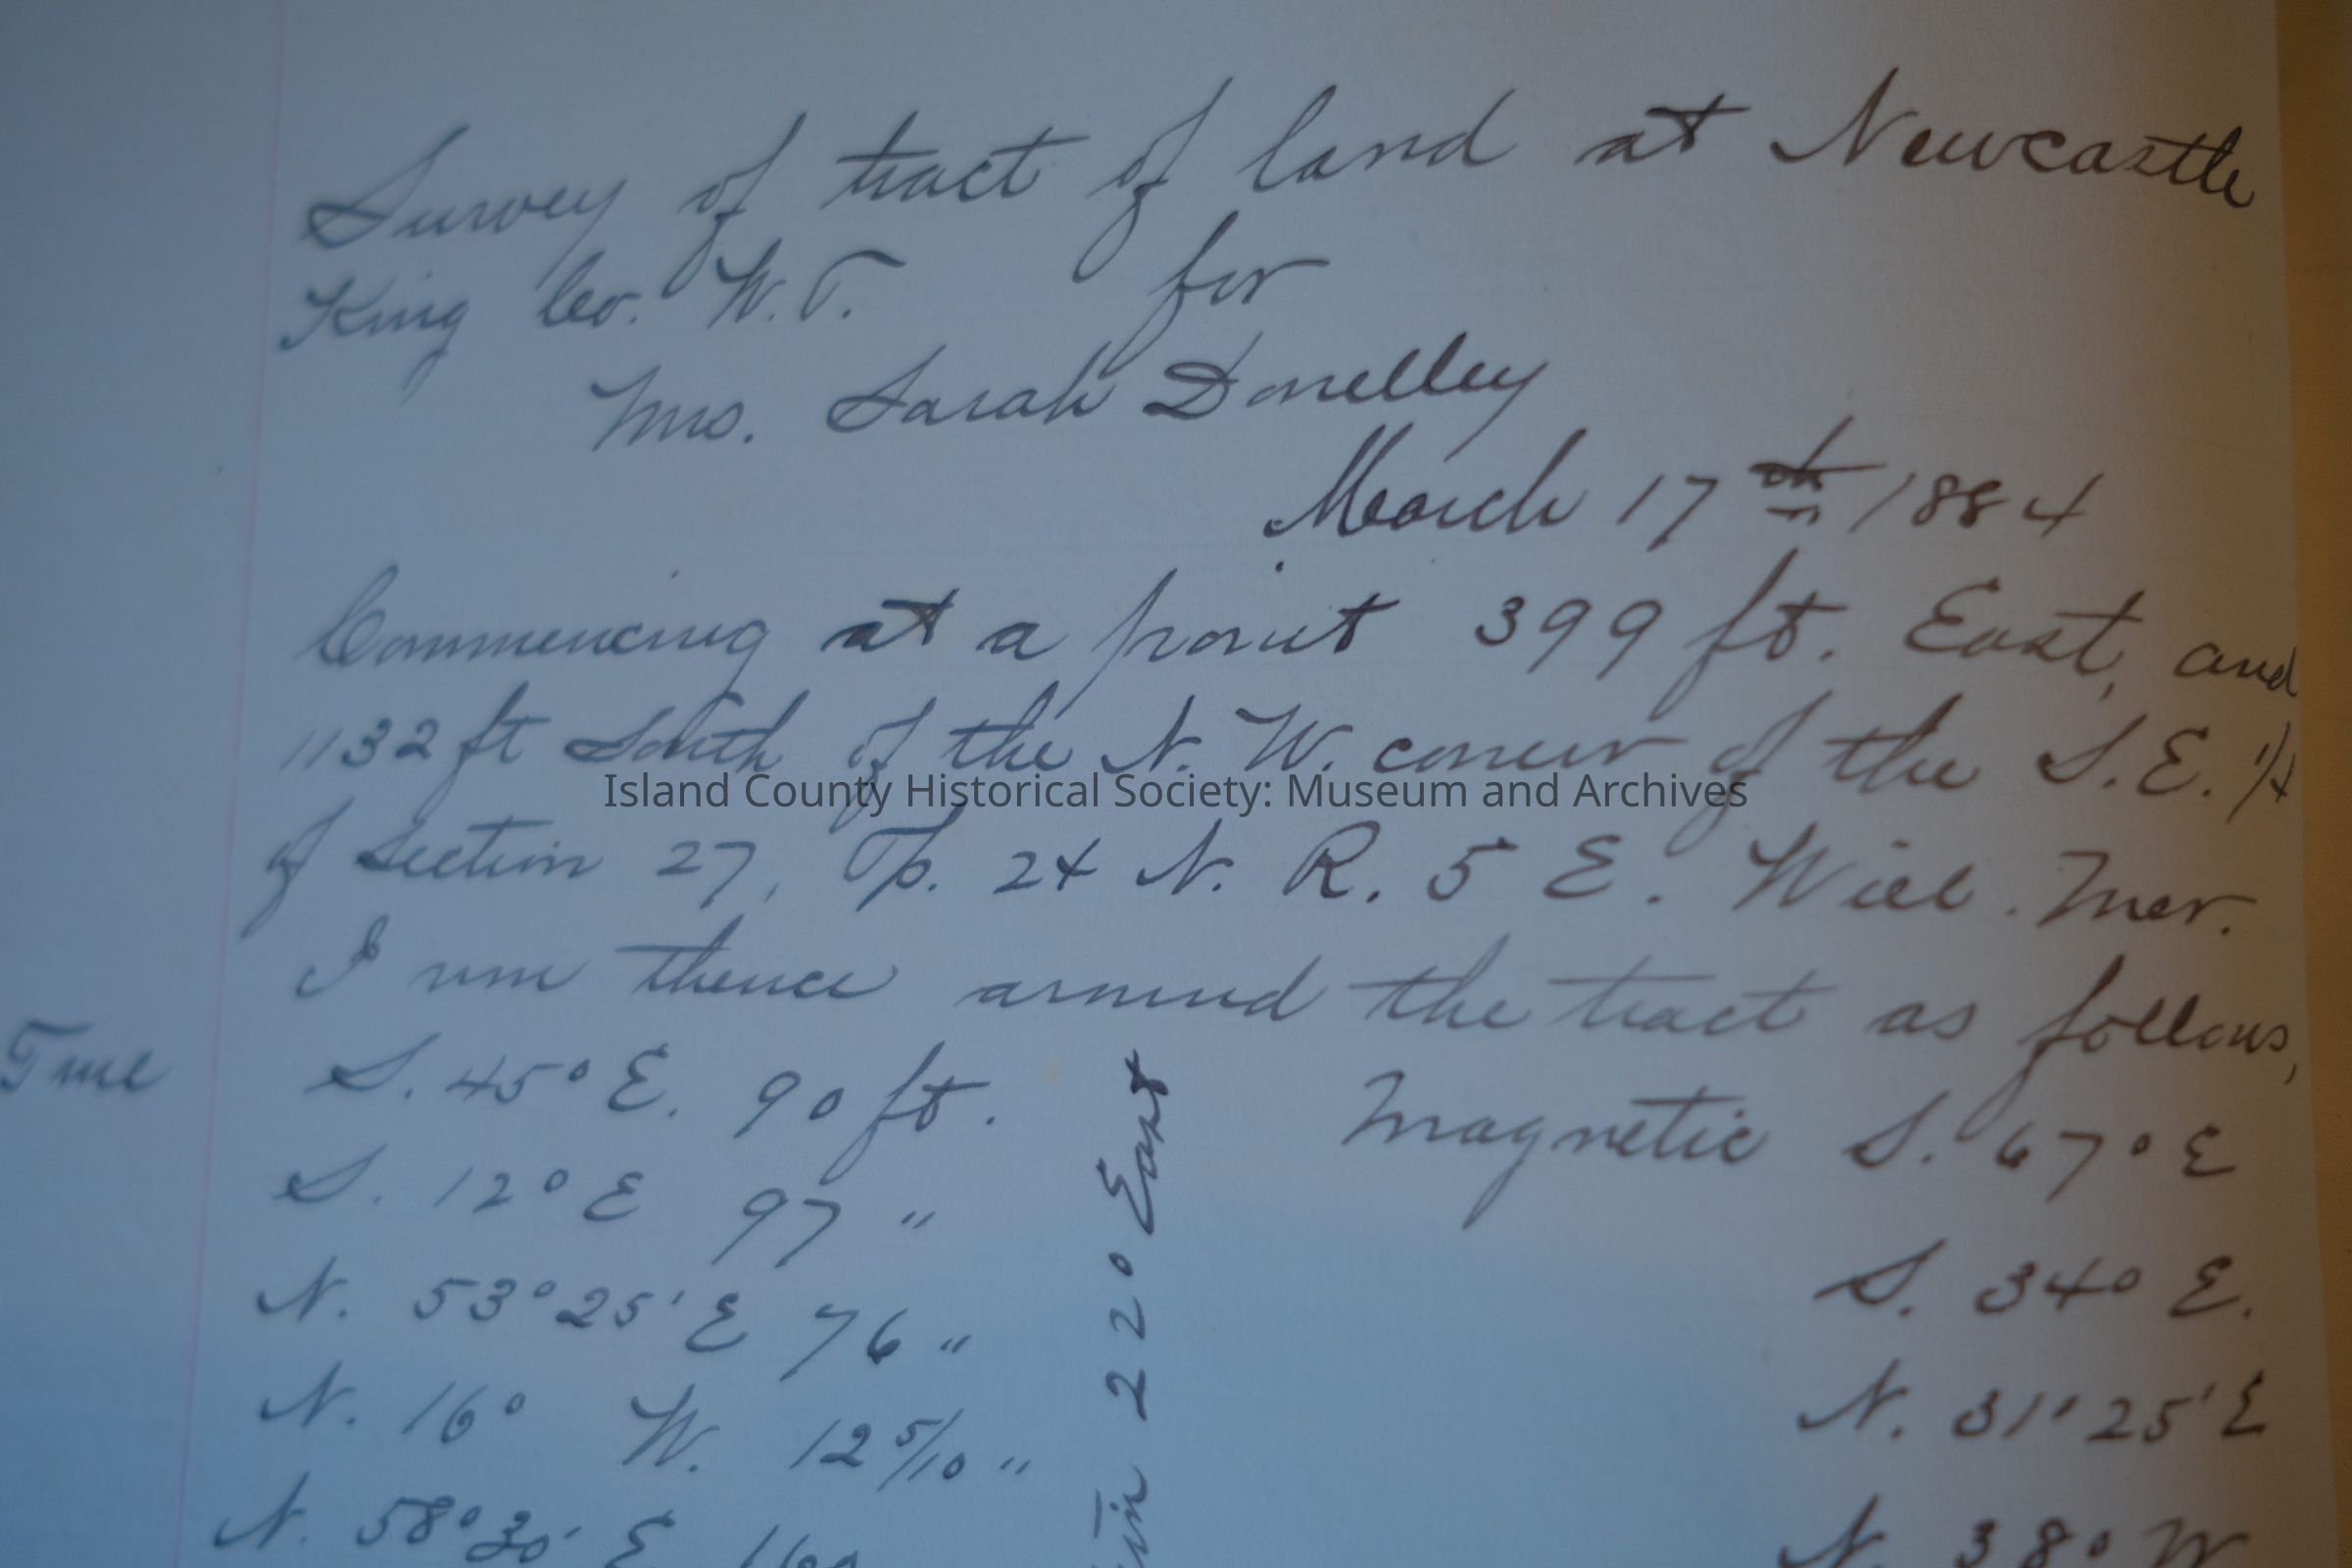 Survey of tract of land at Newcastle
King Co. W.T. for
Mrs. Sarah Donelley
March 17th 1884
Commencing at a point 399 ft. East, and
1132 ft South of the N. W. corner of the S.E. 1/4
Island County Historical Society: Museum and Archives
of Section 27, Tp. 24 N. R. 5 E. Will. Mer.
I run thence around the tract as follows,
True S. 45° E. 90 ft. Magnetic S. 67° E
S. 12° E 97 " S. 34° E.
N. 53° 25' E 76 " N. 31° 25' E
N. 16° W. 12 5/10 " N. 38° W
N. 58° 30' E
22° East